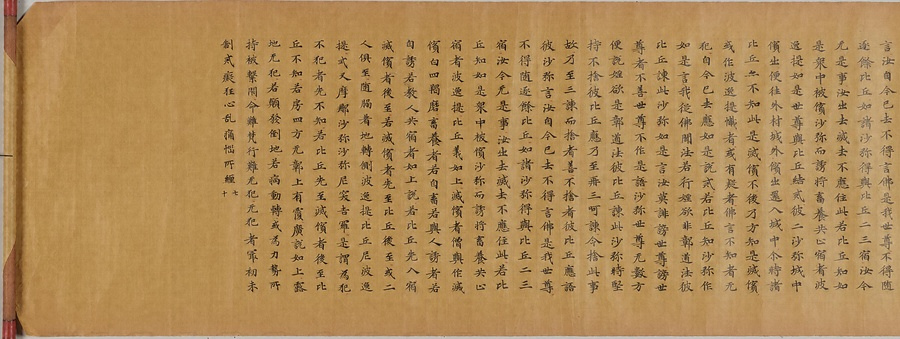 言汝自今已去不得言佛是我世尊不得隨
逐餘比丘如諸沙彌得與比丘二三宿汝今
无是事汝出去滅去不應住此若比丘知如
是衆中被儐沙彌而誘將畜養共止宿者波
逸提如是世尊與比丘結戒彼二沙彌城中
儐出便往外村城外儐出還入城中尒時諸
比丘亦不知此是滅儐不後乃方知是滅儐
或作波逸提懺者或有疑者佛言不知者无
犯自今已去應如是說戒若比丘知沙彌作
如是言我從佛聞法若行婬欲非鄣道法彼
比丘諫此沙彌如是言汝莫誹謗世尊謗世
尊者不善世尊不作是語沙彌世尊无數方
便說婬欲是鄣道法彼比丘諫此沙彌時堅
持不捨彼比丘應乃至再三呵諫令捨此事
故乃至三諫而捨者善不捨者彼比丘應語
彼沙彌言汝自今已去不得言佛是我世尊
不得隨逐餘比丘如諸沙彌得與比丘二三
宿汝今无是事汝出去滅去不應住此若比
丘知如是衆中被儐沙彌而誘將畜養共止
宿者波逸提比丘義如上滅儐者僧與作滅
儐白四羯磨畜養者若自畜若與人誘者若
自誘若教人共宿者如上說若比丘先入宿
滅儐者後至若滅儐者先至比丘後至或二
人俱至隨脇着地轉側波逸提比丘尼波逸
提式叉摩那沙彌沙彌尼突吉羅是謂為犯
不犯者先不知若比丘先至滅儐者後至比
丘不知若房四方无鄣上有覆廣說如上露
地无犯若顛發倒地若病動轉或為力勢所
持被繫閇命難梵行難无犯无犯者冣初未
制戒癡狂心乱痛惱所纏 七十